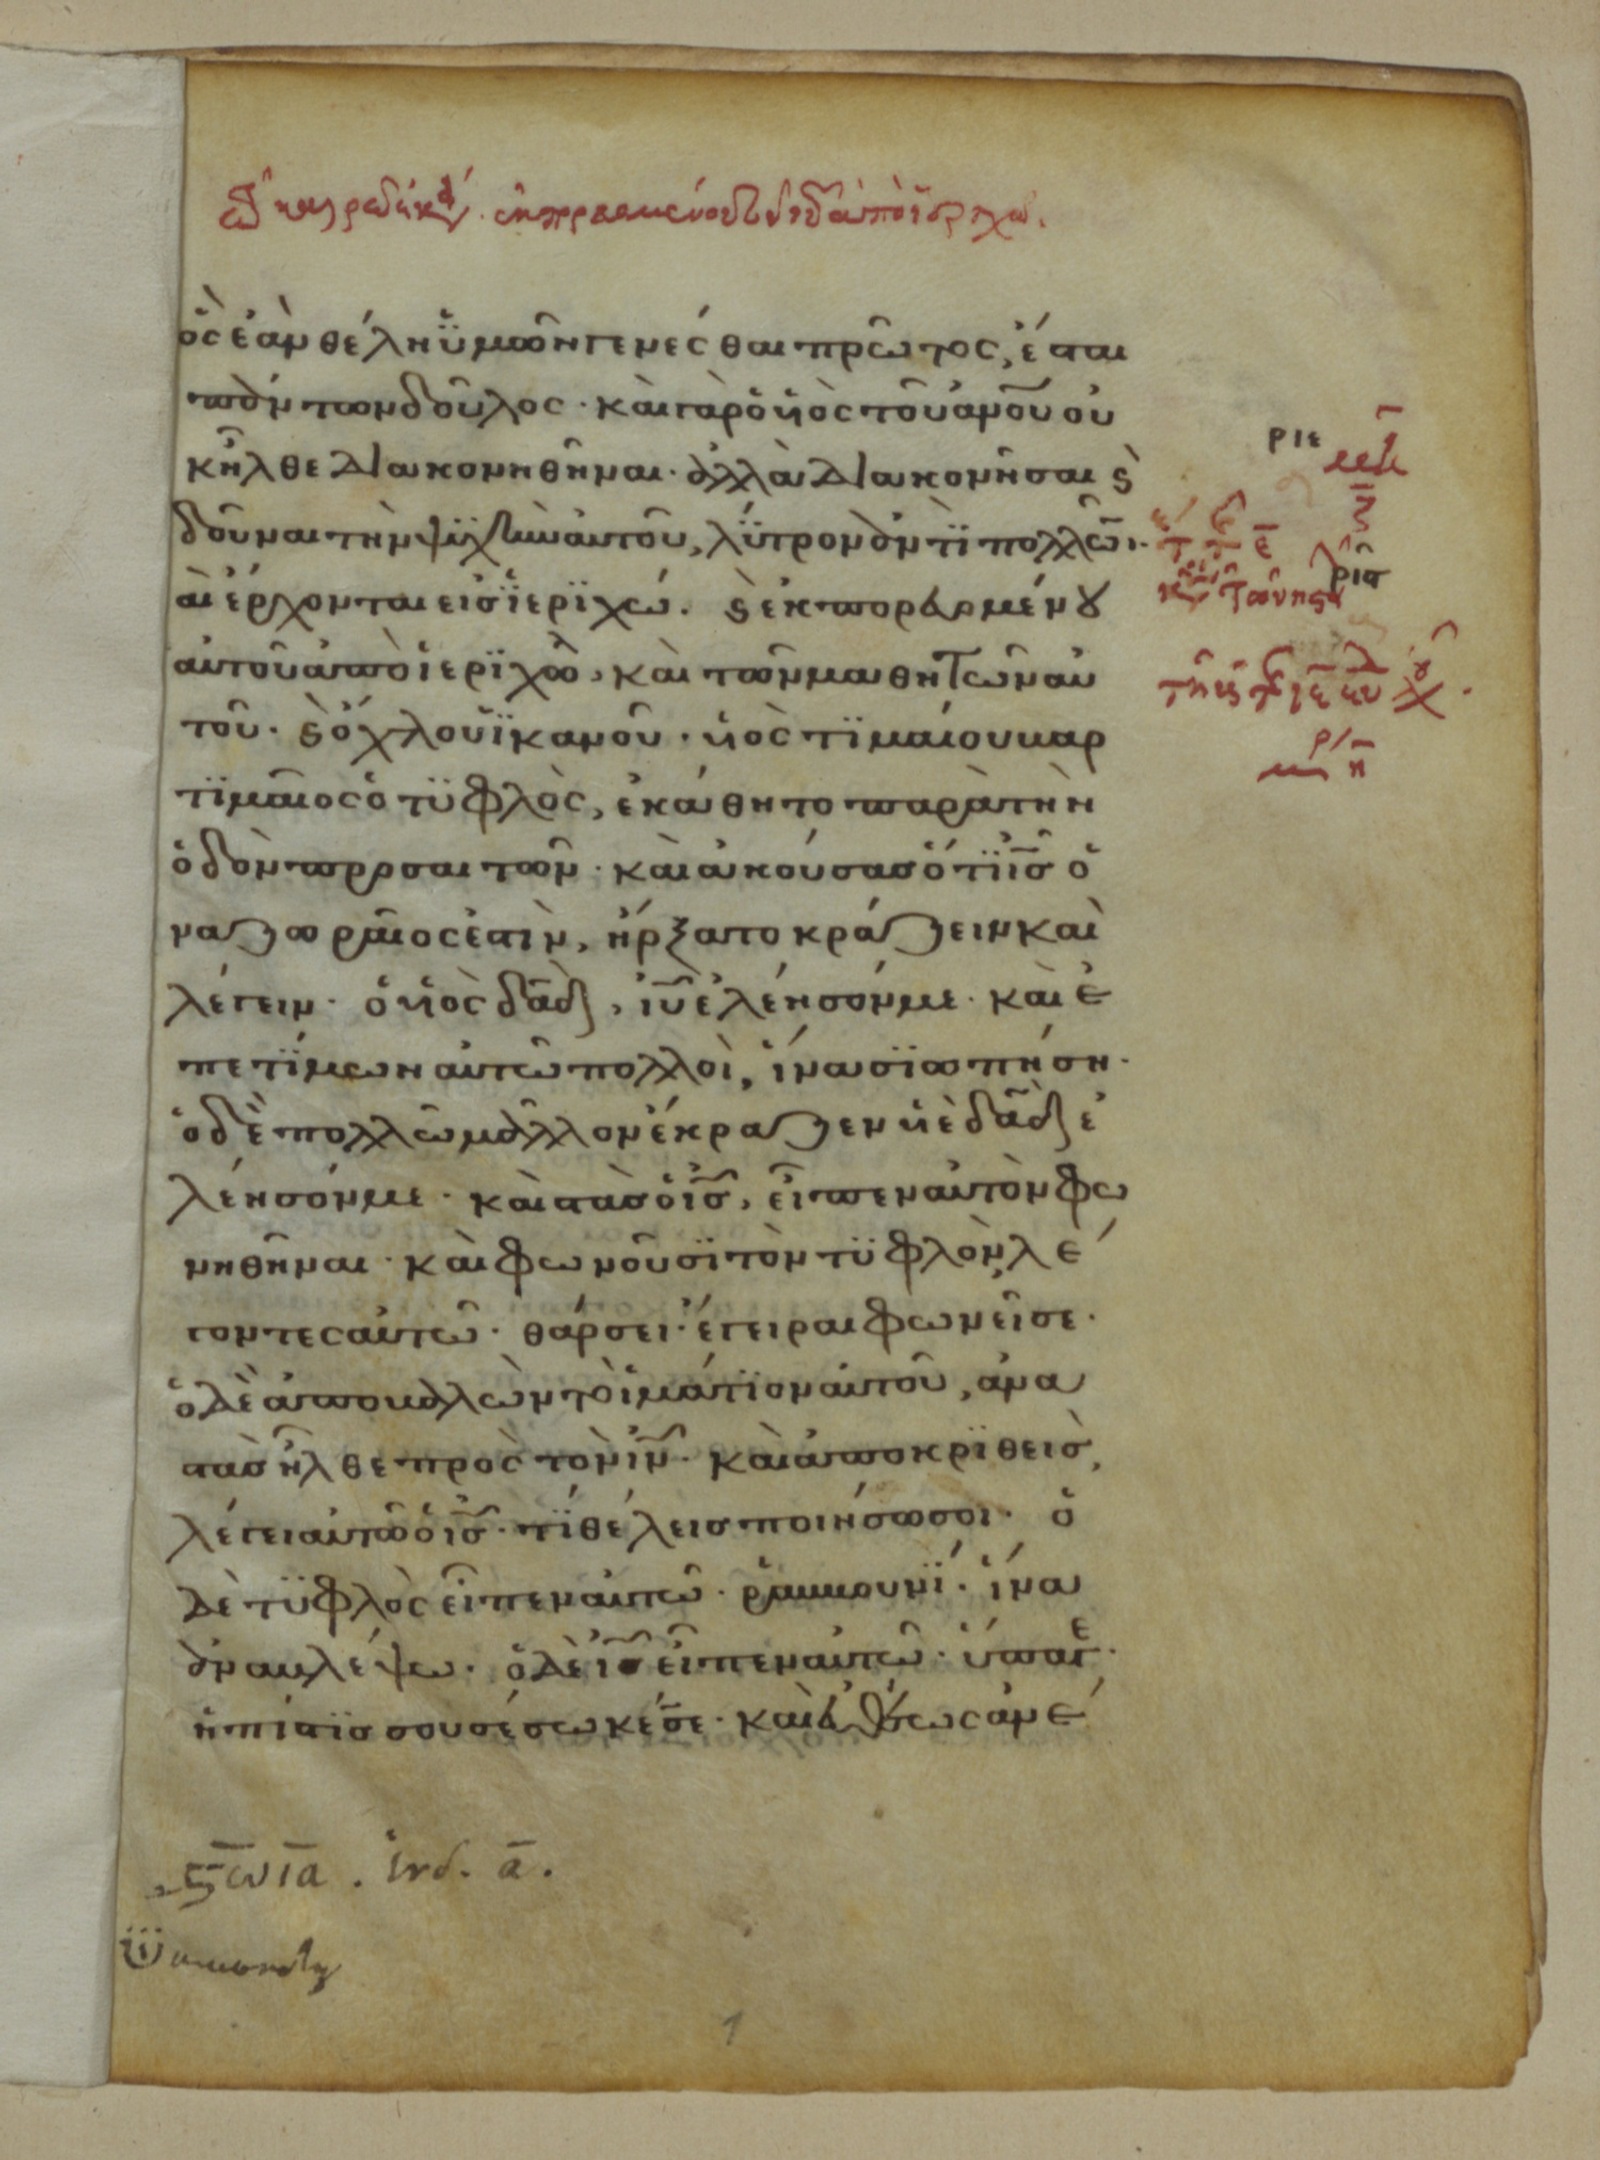 ὃς ἐὰν θέλη ὑμῶν γενέσθαι πρῶτος, ἔσται
πάντων δοῦλος · καὶ γὰρ ὁ ὑιὸς τοῦ ἀνου οὐ
κ ἦλθε διακονηθῆναι · ἀλλὰ διακονῆσαι ϗ
δοῦναι τὴν ψϋχὴν αὐτοῦ, λΰτρον ἀντὶ πολλῶν ·
ριε
ϗ ἔρχονται εἰσ ϊεριχώ . ϗ ἐκπορευομένου
ρις
αὐτοῦ ἀπὸ ἱερϊχὼ, καὶ τῶν μαθητῶν αὐ
τοῦ · ϗ ὄχλου ἱκανοῦ · ὑιὸς τϊμαίου βαρ
τϊμαῖος ὁ τϋφλὸς, ἐκάθητο παρὰ τὴν
ὁδὸν προσαιτῶν · καὶ ἀκούσασ ὅτϊ ισ ὁ
ναζωραῖος ἐστὶν, ἤρξατο κράζειν καὶ
λέγειν · ὁ ὑιὸς δαδ, ιυ ἐλέησόν με · καὶ ἐ
πετΐμων αὐτῶ πολλοὶ, ἵνα σϊωπήση ·
ὁ δὲ πολλῶ μᾶλλον ἔκραζεν ὑιὲ δαδ ἐ
λέησόν με · καὶ στὰσ ὁ ισ, εἶπεν αὐτὸν φω
νηθῆναι · καὶ φωνοῦσϊ τὸν τϋφλὸν, λέ
γοντες αὐτῶ · θάρσει · ἔγειραι φωνεῖ σε ·
ὁ δὲ ἀποβαλὼν τὸ ἱμάτϊον αὐτοῦ, ἀνα
στὰσ ἦλθε πρὸς τὸν ιν · καὶ ἀποκρϊθεισ,
λέγει αὐτῶ ὁ ισ · τΐ θέλεισ ποιήσω σοι · ὁ
δὲ τϋφλὸς εἶπεν αὐτῶ · ῥαββουνΐ · ἵνα
ἀναβλέψω · ὁ δὲ ισ εἶπεν αὐτῶ · ὕπαγε ·
ἡ πίστϊσ σου σέσωκέ σε · καὶ εὐθέως ἀνέ
͵ϛωια . ἰνδ. α.
1